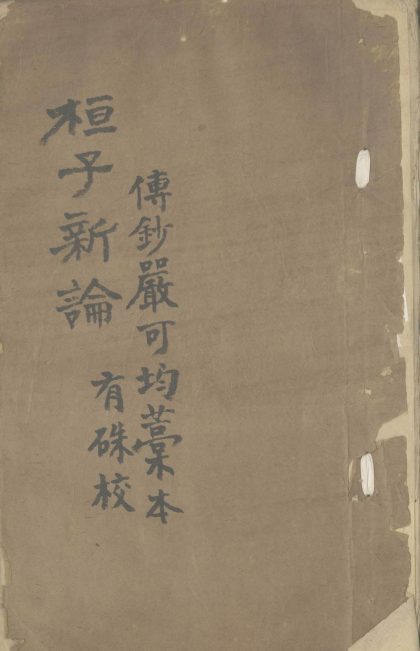 傳鈔嚴可均藁本
桓子新論
有硃校